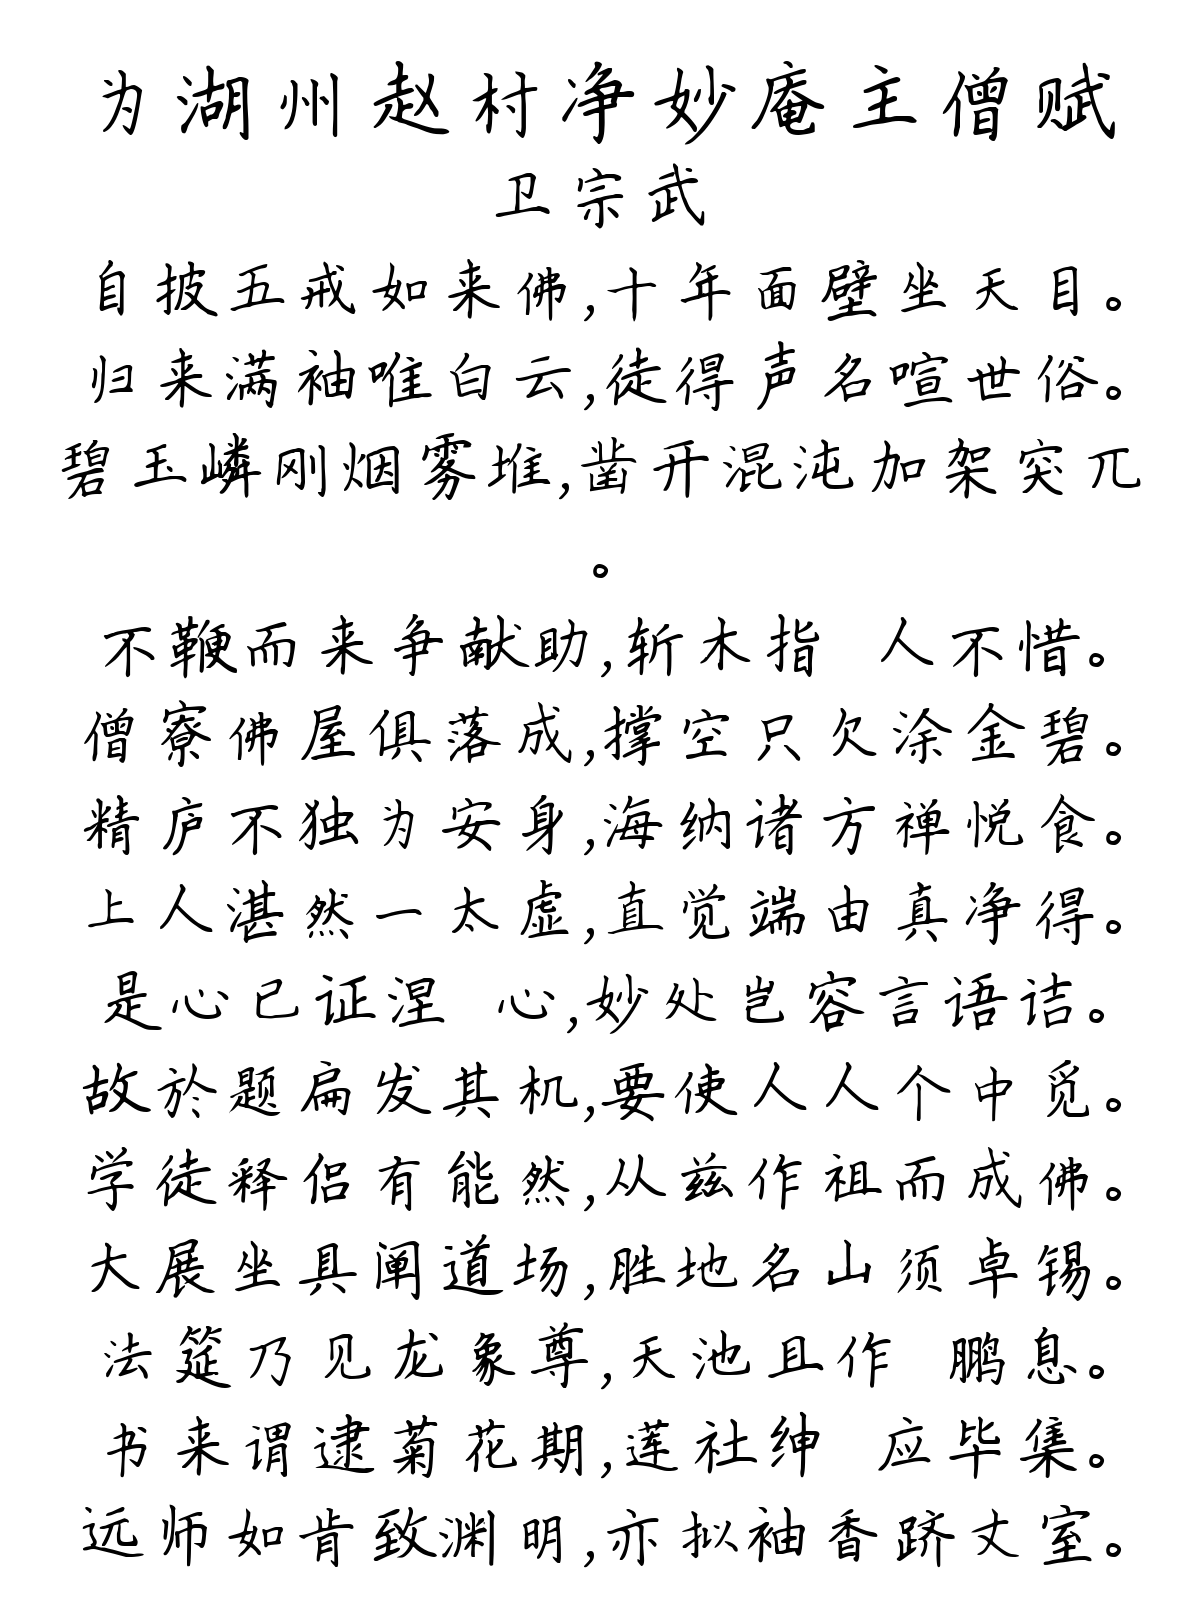 为湖州赵村净妙庵主僧赋
卫宗武
自披五戒如来佛,十年面壁坐天目。
归来满袖唯白云,徒得声名喧世俗。
碧玉嶙刚烟雾堆,凿开混沌加架突兀
。
不鞭而来争献助,斩木指 人不惜。
僧寮佛屋俱落成,撑空只欠涂金碧。
精庐不独为安身,海纳诸方禅悦食。
上人湛然一太虚,直觉端由真净得。
是心已证涅 心,妙处岂容言语诘。
故於题扁发其机,要使人人个中觅。
学徒释侣有能然,从兹作祖而成佛。
大展坐具阐道场,胜地名山须卓锡。
法筵乃见龙象尊,天池且作 鹏息。
书来谓逮菊花期,莲社绅 应毕集。
远师如肯致渊明,亦拟袖香跻丈室。